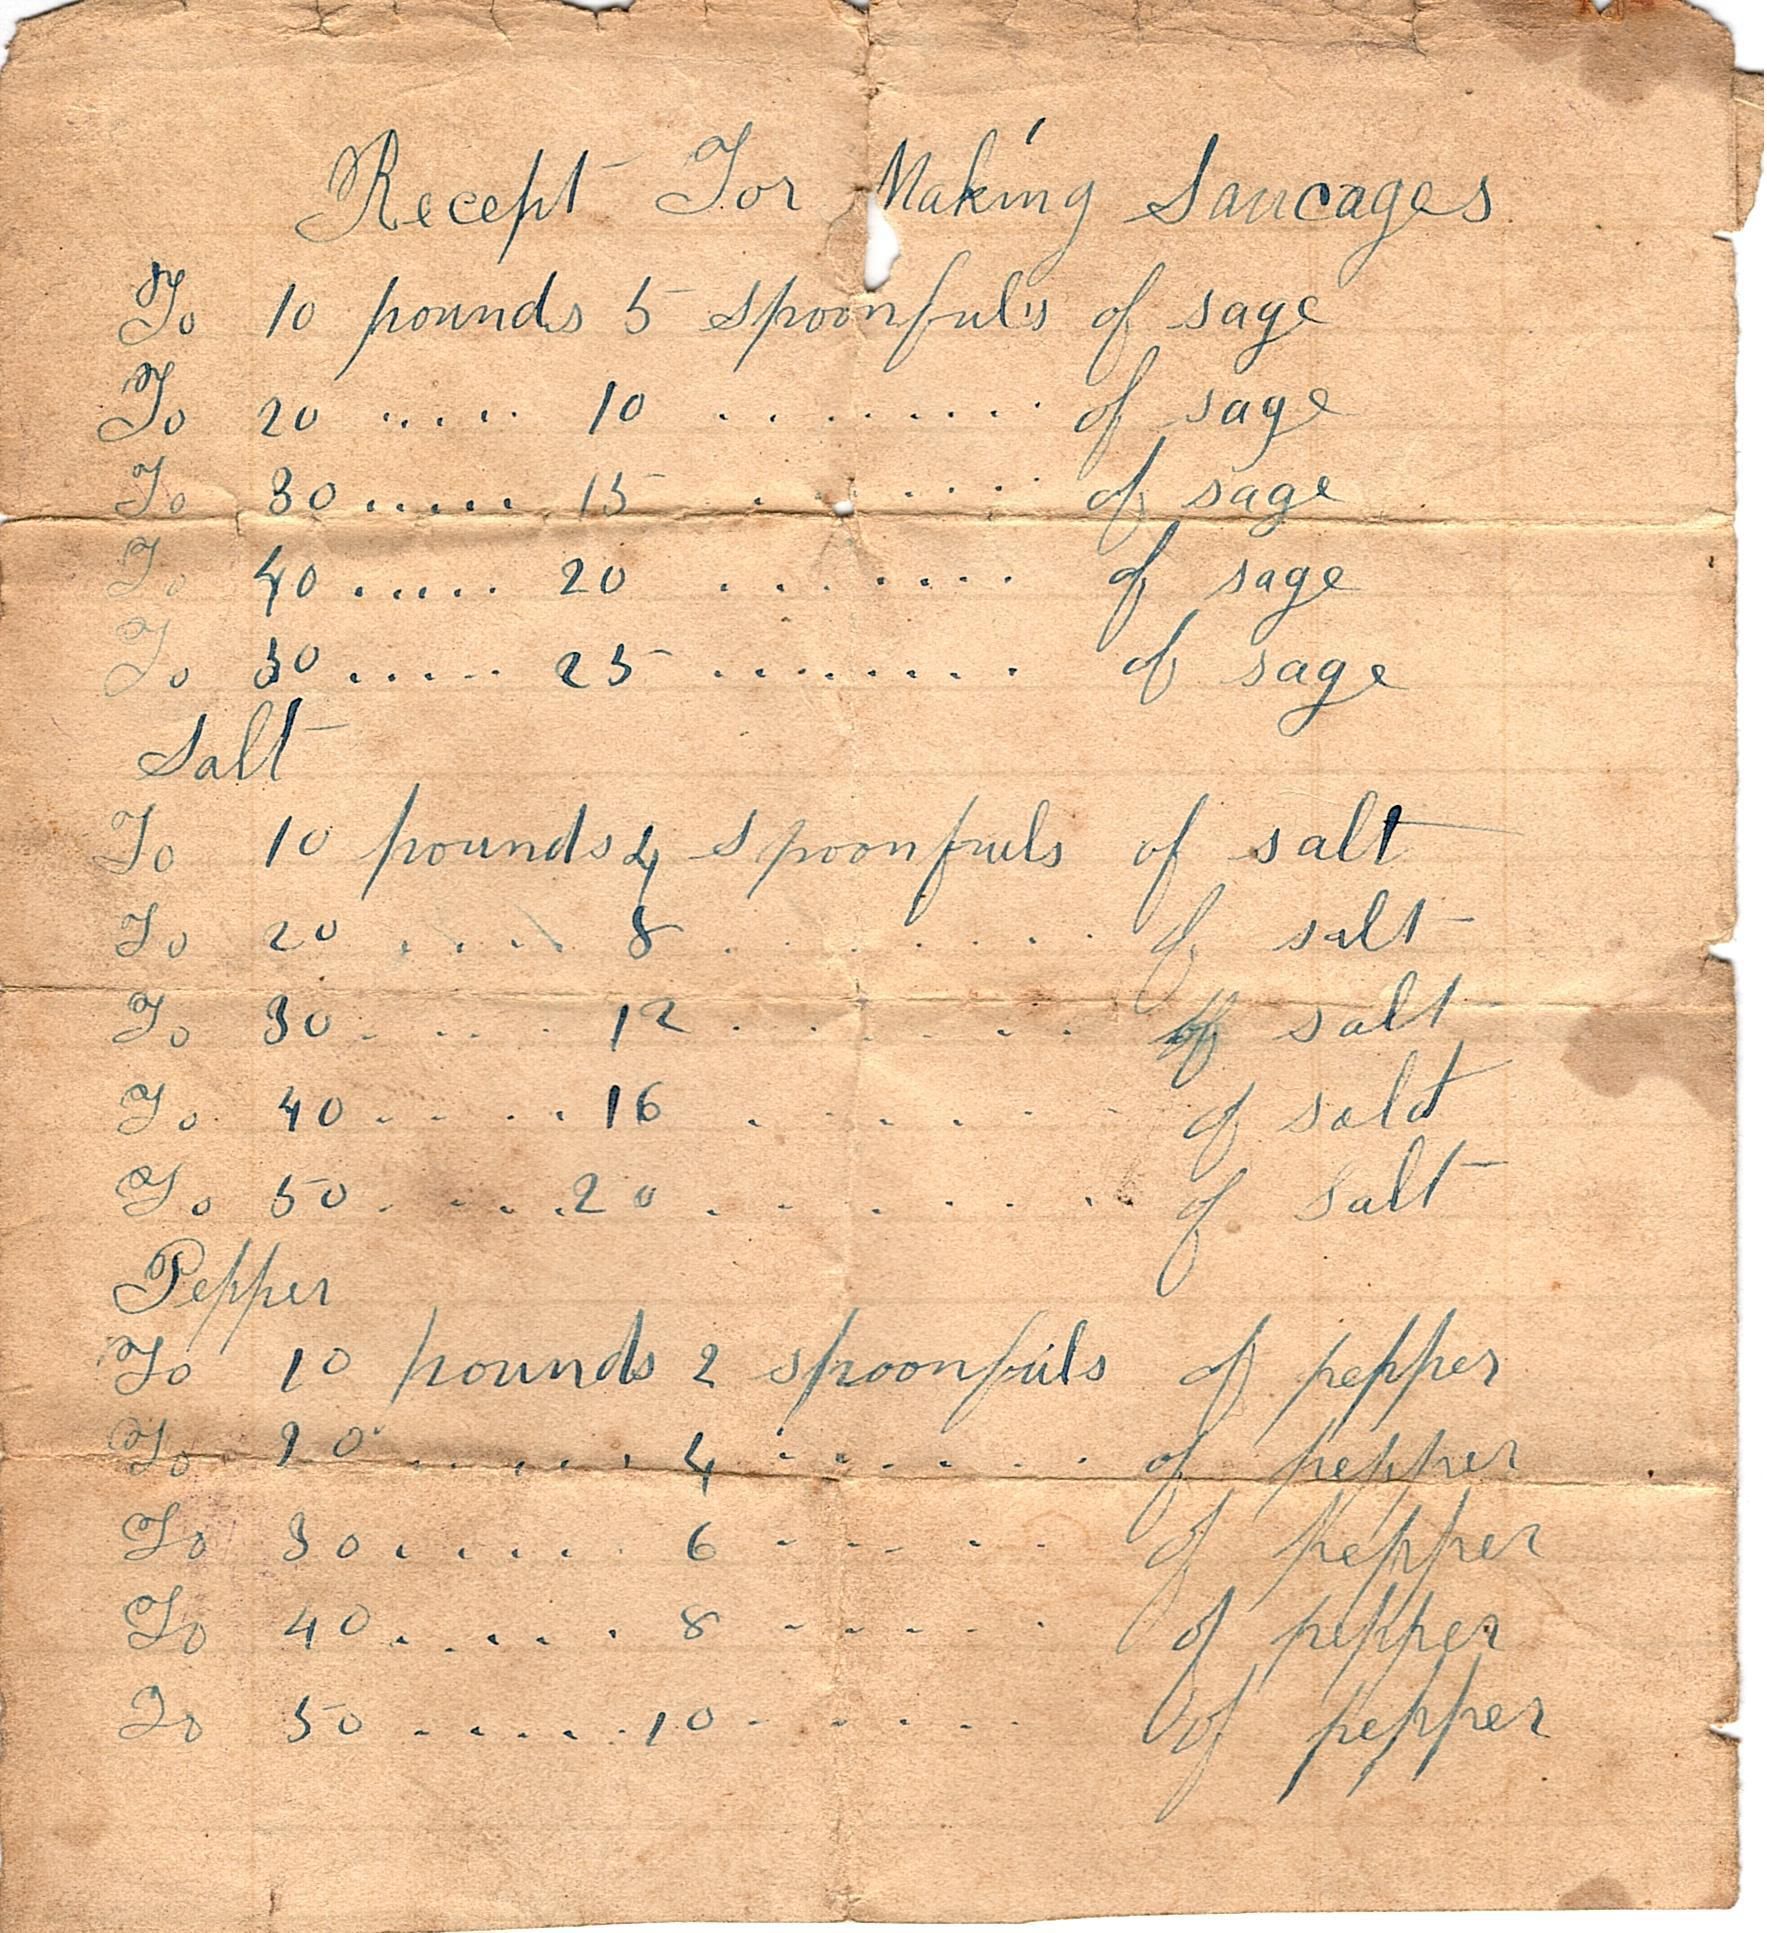 Recept For Making Saucages
To 10 pounds 5 spoonfuls of sage
To 20 ..... 10 ......... of sage
To 30 ..... 15 ........ of sage
To 40 ..... 20 ........ of sage
To 50 ..... 25 ........ of sage
Salt
To 10 pounds 4 spoonfuls of salt
To 20 .... 8 ........ of salt
To 30 ..... 12 ...... of salt
To 40 ..... 16 ...... of salt
To 50 ..... 20 ....... of salt
Pepper
To 10 pounds 2 spoonfuls of pepper
To 20 ...... 4 ....... of pepper
To 30 ...... 6 ...... of pepper
To 40 ...... 8 ...... of pepper
To 50 ...... 10 ...... of pepper